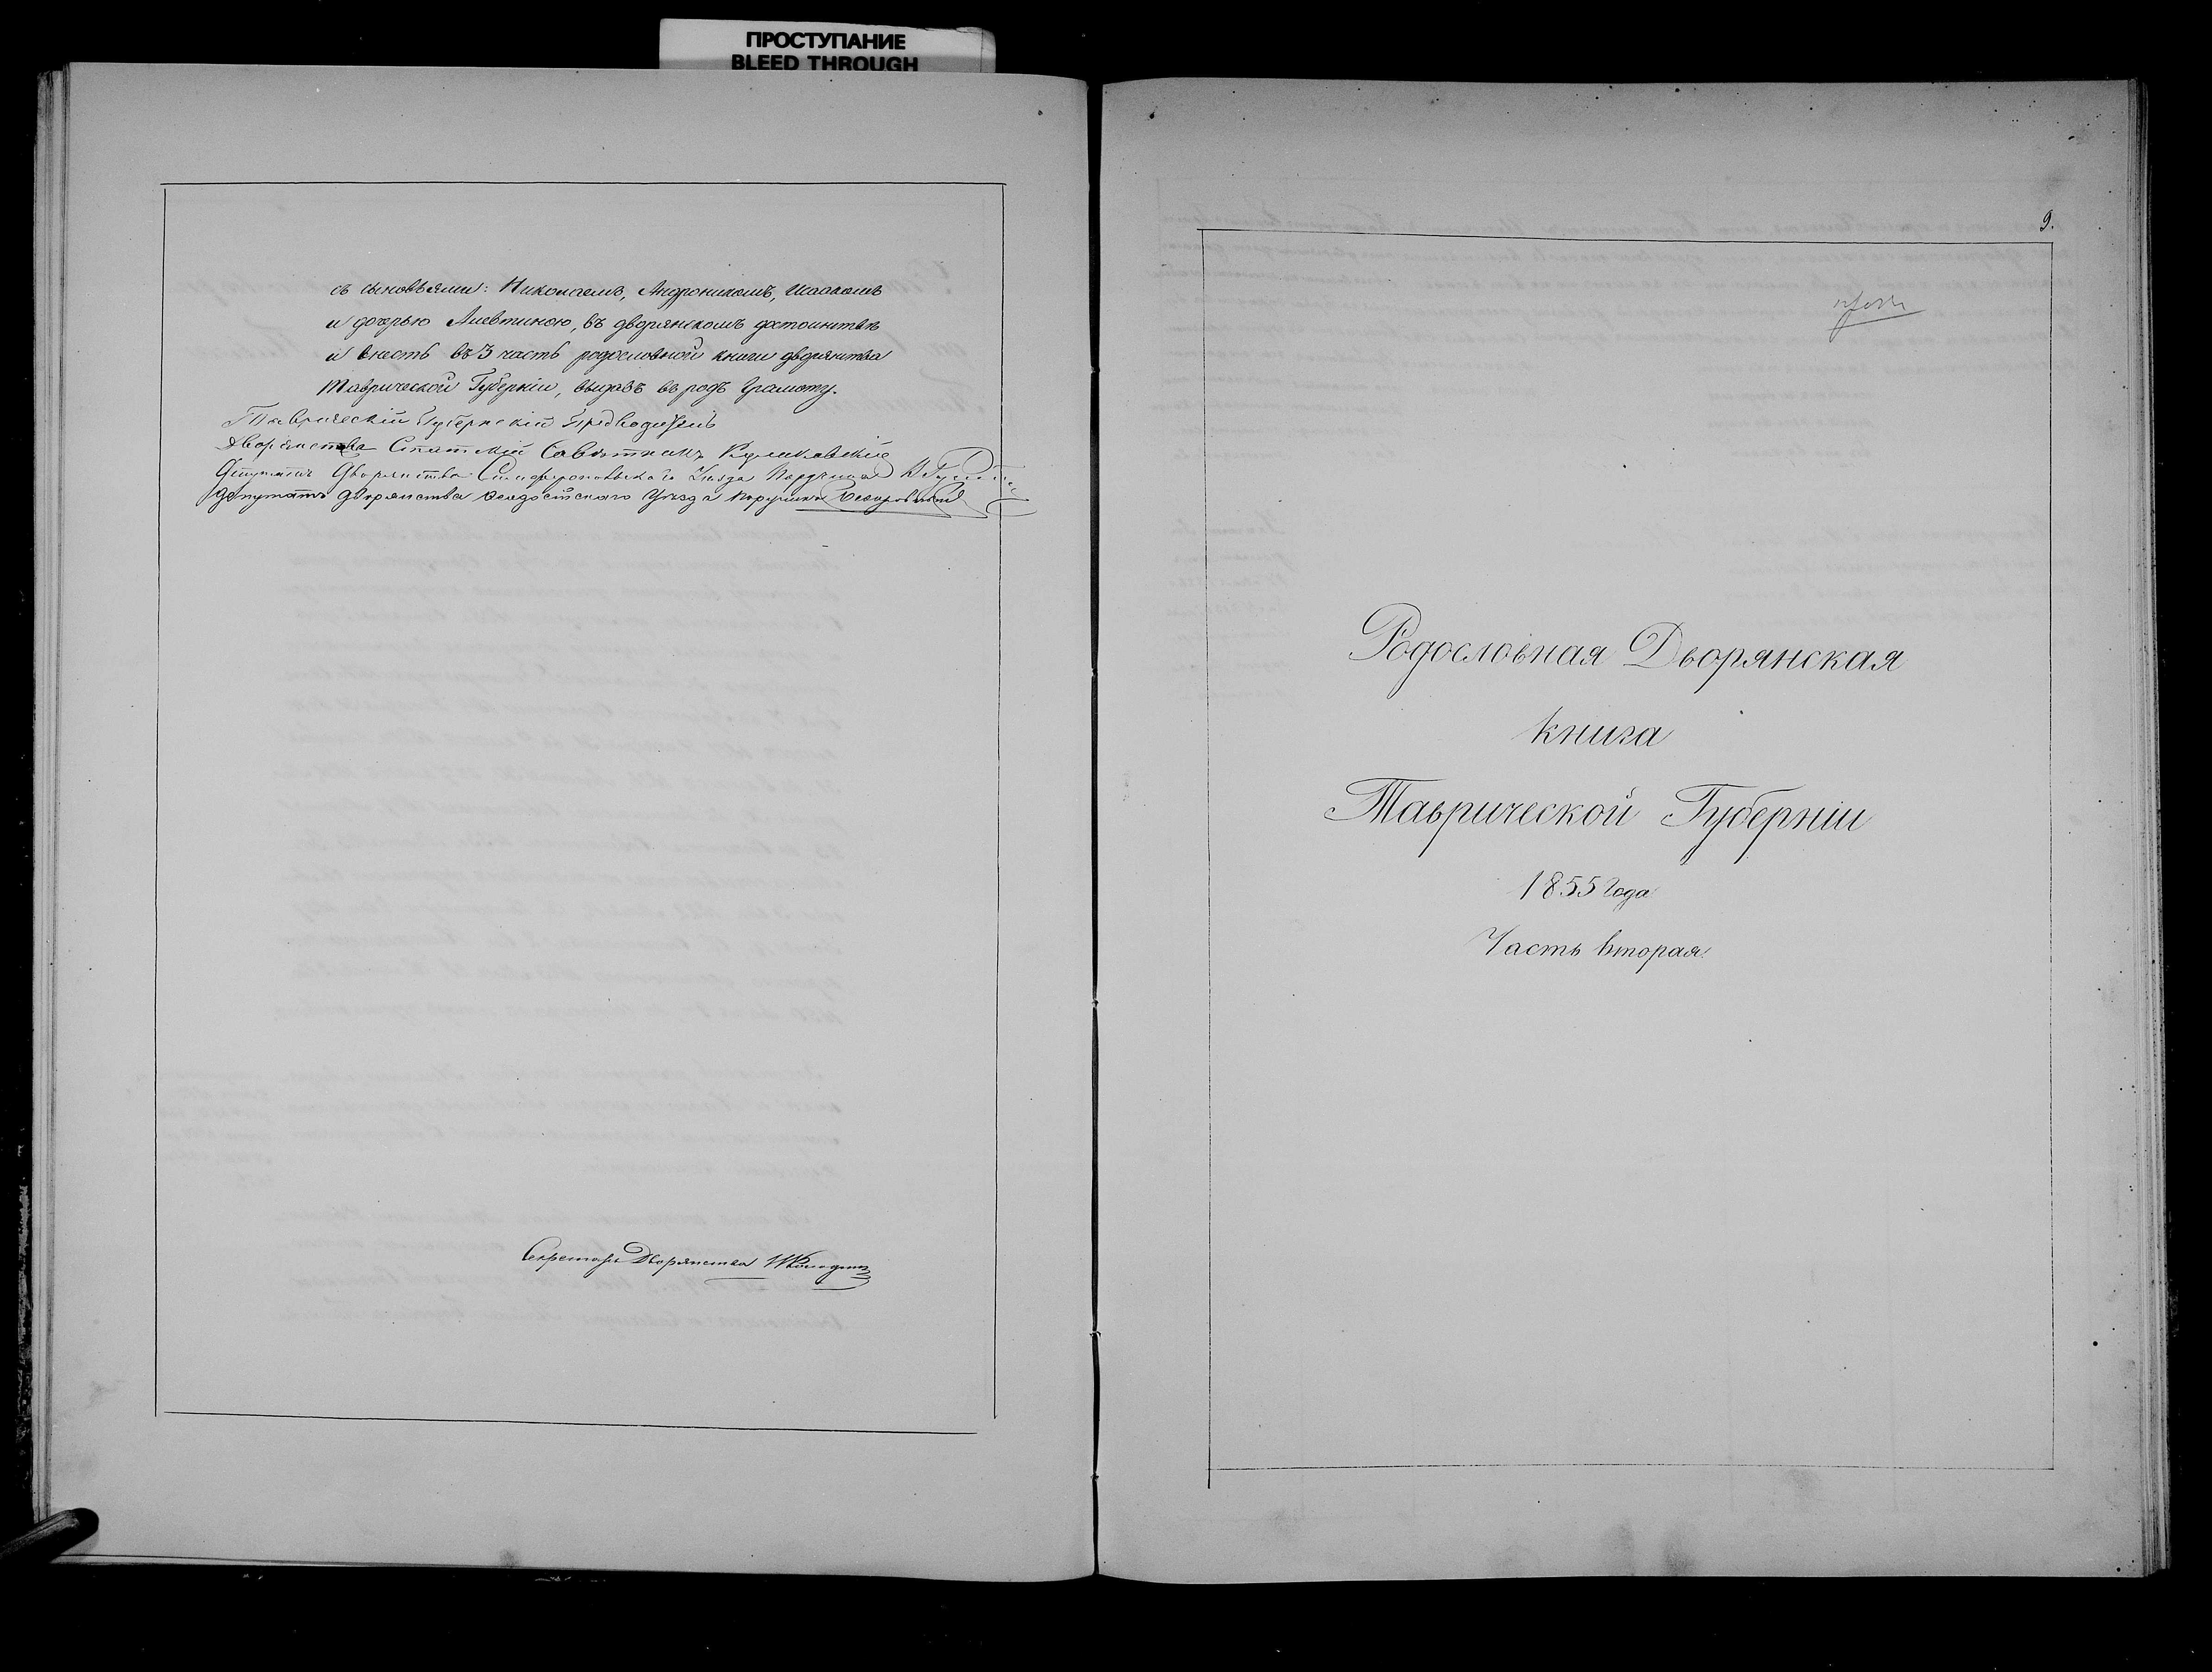 ПРОСТУПАНИЕ
BLEED THROUGH
съ сыновьями: Николаемъ, Андроникомъ, Исаакомъ
и дочерью Алевтиною, въ дворянскомъ достоинствѣ
и внесть въ 3 часть родословной книги дворянства
Таврической Губерніи, выдавъ въ родъ Грамоту.
Таврическій Губернскій Предводитель
Дворянства Статскій Совѣтникъ
Депутатъ Дворянства Симферопольскаго Уѣзда Поручикъ
Депутатъ Дворянства Ѳеодосійскаго Уѣзда Поручикъ
Секретарь Дворянства
9.
Родословная Дворянская
книга
Таврической Губерніи
1855 года
Часть вторая.